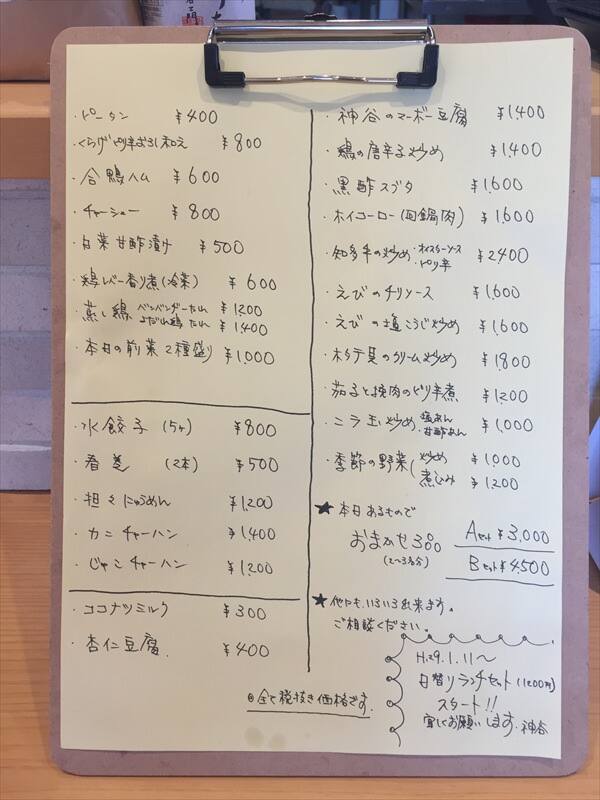 ・ピータン ¥400
・くらげピリ辛おろし和え ¥800
・合鴨ハム ¥600
・チャーシュー ¥800
・白菜甘酢漬け ¥500
・鶏レバー香り煮(冷菜) ¥600
・蒸し鶏 バンバンジーたれ ¥1200
よだれ鶏たれ ¥1,400
・本日の前菜2種盛り ¥1,000
・水餃子 (5ヶ) ¥800
・春巻 (2本) ¥500
・担々にゅうめん ¥1,200
・カニチャーハン ¥1,400
・じゃこチャーハン ¥1,200
・ココナツミルク ¥300
・杏仁豆腐 ¥400
・神谷のマーボー豆腐 ¥1,400
・鶏の唐辛子炒め ¥1,400
・黒酢スブタ ¥1,600
・ホイコーロー(回鍋肉) ¥1,600
・知多牛の炒め ・オイスターソース ・ピリ辛 ¥2400
・えびのチリソース ¥1,600
・えびの塩こうじ炒め ¥1,600
・ホタテ貝のクリーム炒め ¥1,800
・茄子と挽肉のピリ辛煮 ¥1,200
・ニラ玉炒め ・塩あん ・甘酢あん ¥1,000
・季節の野菜 ( 炒め ¥1,000
煮込み ¥1200
★本日あるもので
おまかせ
(2〜3名分)
Aセット ¥3,000
Bセット ¥4,500
★他にも、いろいろ出来ます。
ご相談ください。
H.29.1.11〜
日替りランチセット(1200円)
スタート!!
宜しくお願いします。神谷
◎全て税抜き価格です。